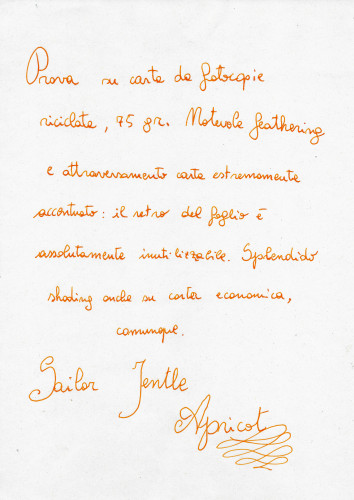 Prova su carta da fotocopie
riciclata, 75 gr. Notevole feathering
e attraversamento carta estremamente
accentuato: il retro del foglio è
assolutamente inutilizzabile. Splendido
shading anche su carta economica,
comunque.
Sailor Jentle
Apricot